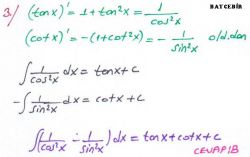 BATCEBİR
3/ (tanx)' = 1+tan²x = 1/cos²x
(cotx)' = -(1+cot²x) = - 1/sin²x old.dan
∫ 1/cos²x dx = tanx+c
-∫ 1/sin²x dx = cotx+c
∫(1/cos²x - 1/sin²x) dx = tanx+cotx+c
CEVAP B